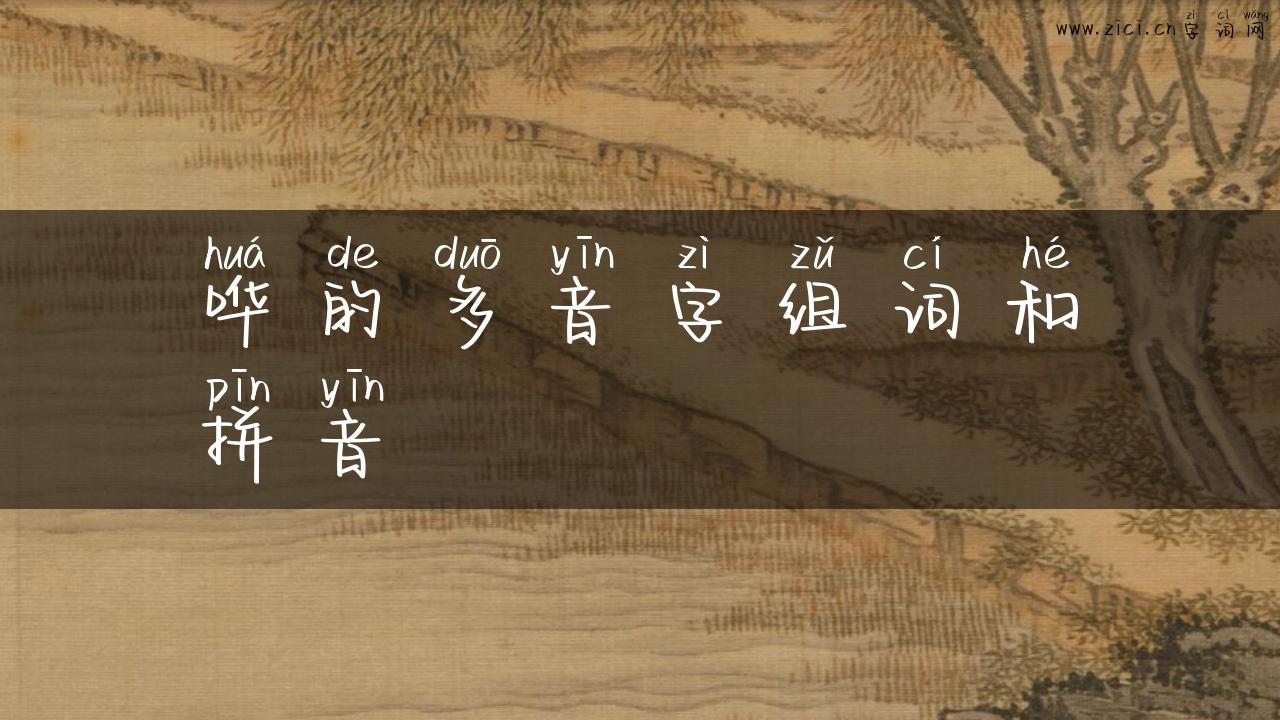 zì cí wǎng
www.zici.cn字词网
huá de duō yīn zì zǔ cí hé
哗的多音字组词和
pīn yīn
拼音